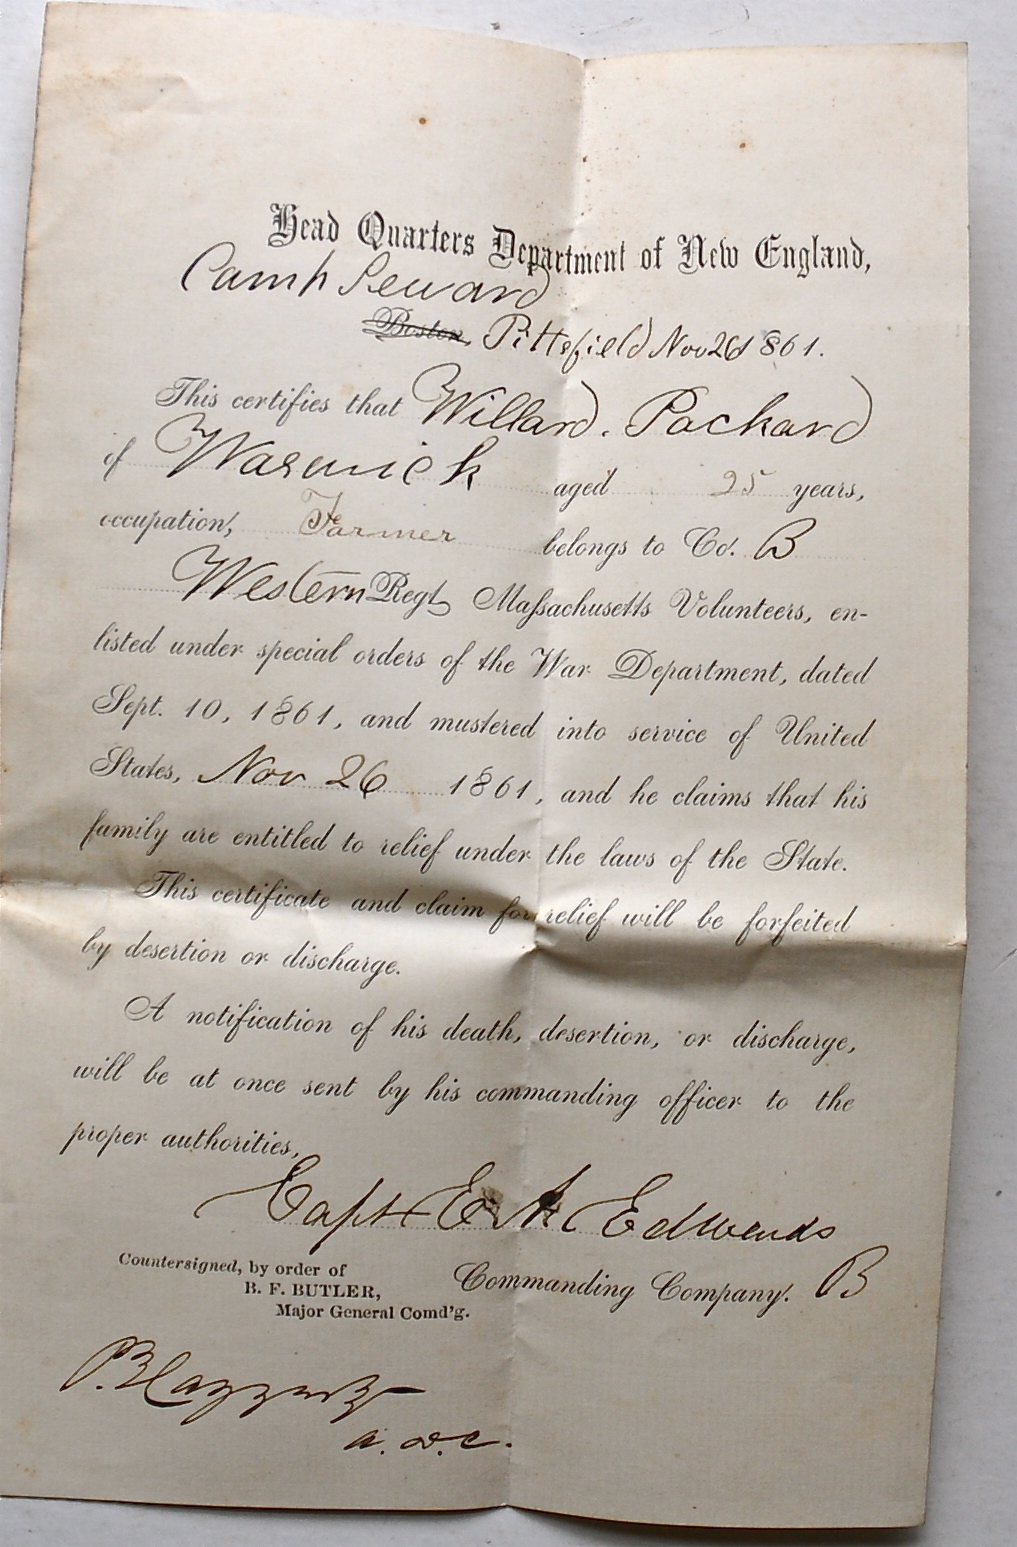 Head Quarters Department of New England,
Camp Seward
Boston, Pittsfield Nov 26 1861.
This certifies that Willard. Packard
of Warwick aged 25 years,
occupation, Farmer belongs to Co. B
Western Regt Massachusetts Volunteers, en-
listed under special orders of the War Department, dated
Sept. 10, 1861, and mustered into service of United
States, Nov 26 1861, and he claims that his
family are entitled to relief under the laws of the State.
This certificate and claim for relief will be forfeited
by desertion or discharge.
A notification of his death, desertion, or discharge,
will be at once sent by his commanding officer to the
proper authorities,
Capt E. A. Edwards
Countersigned, by order of
B. F. BUTLER,
Major General Comd'g.
Commanding Company. B
P. Haggerty
a. d. c.